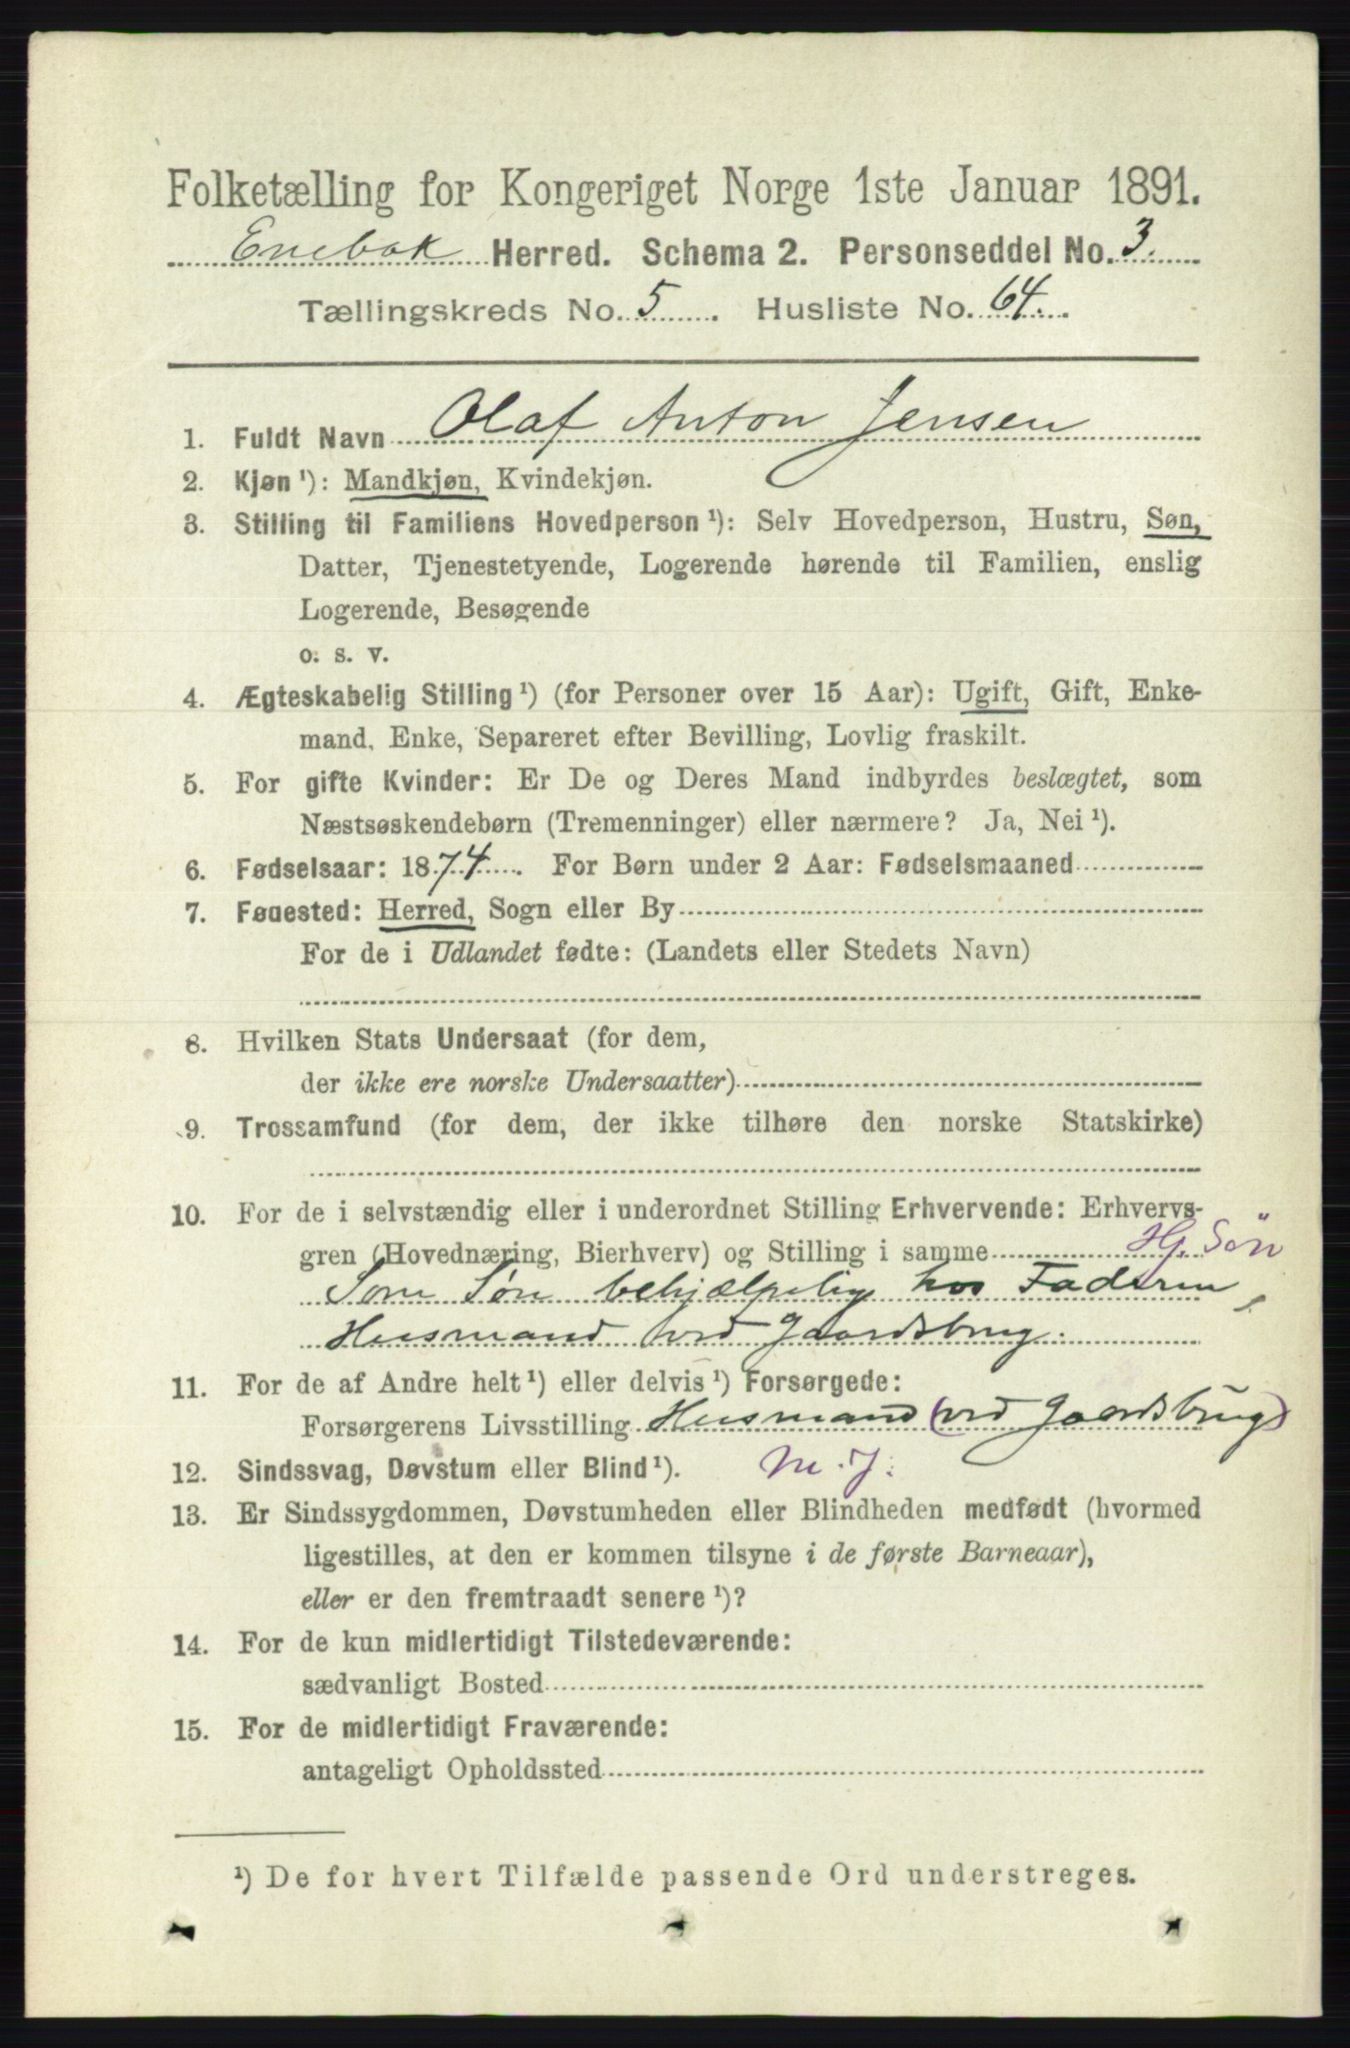 Folketælling for Kongeriget Norge 1ste Januar 1891.
Enebak Herred. Schema 2. Personseddel No. 3.
Tællingskreds No. 5. Husliste No. 64.
1. Fuldt Navn Olaf Anton Jensen
2. Kjøn ¹): Mandkjøn, Kvindekjøn.
3. Stilling til Familiens Hovedperson ¹): Selv Hovedperson, Hustru, Søn,
Datter, Tjenestetyende, Logerende hørende til Familien, enslig
Logerende, Besøgende
o. s. v.
4. Ægteskabelig Stilling ¹) (for Personer over 15 Aar): Ugift, Gift, Enke-
mand, Enke, Separeret efter Bevilling, Lovlig fraskilt.
5. For gifte Kvinder: Er De og Deres Mand indbyrdes beslægtet, som
Næstsøskendebørn (Tremenninger) eller nærmere? Ja, Nei ¹).
6. Fødselsaar: 1874. For Børn under 2 Aar: Fødselsmaaned
7. Fødested: Herred, Sogn eller By
For de i Udlandet fødte: (Landets eller Stedets Navn)
8. Hvilken Stats Undersaat (for dem,
der ikke ere norske Undersaatter)
9. Trossamfund (for dem, der ikke tilhøre den norske Statskirke)
10. For de i selvstændig eller i underordnet Stilling Erhvervende: Erhvervs-
gren (Hovednæring, Bierhverv) og Stilling i samme Hj. Søn
Som Søn behjælpelig hos Faderen,
Husmand ved Gaardsbrug.
11. For de af Andre helt ¹) eller delvis ¹) Forsørgede:
Forsørgerens Livsstilling Husmand (ved Gaardsbrug)
12. Sindssvag, Døvstum eller Blind ¹). M. J.
13. Er Sindssygdommen, Døvstumheden eller Blindheden medfødt (hvormed
ligestilles, at den er kommen tilsyne i de første Barneaar),
eller er den fremtraadt senere ¹)?
14. For de kun midlertidigt Tilstedeværende:
sædvanligt Bosted
15. For de midlertidigt Fraværende:
antageligt Opholdssted
¹) De for hvert Tilfælde passende Ord understreges.